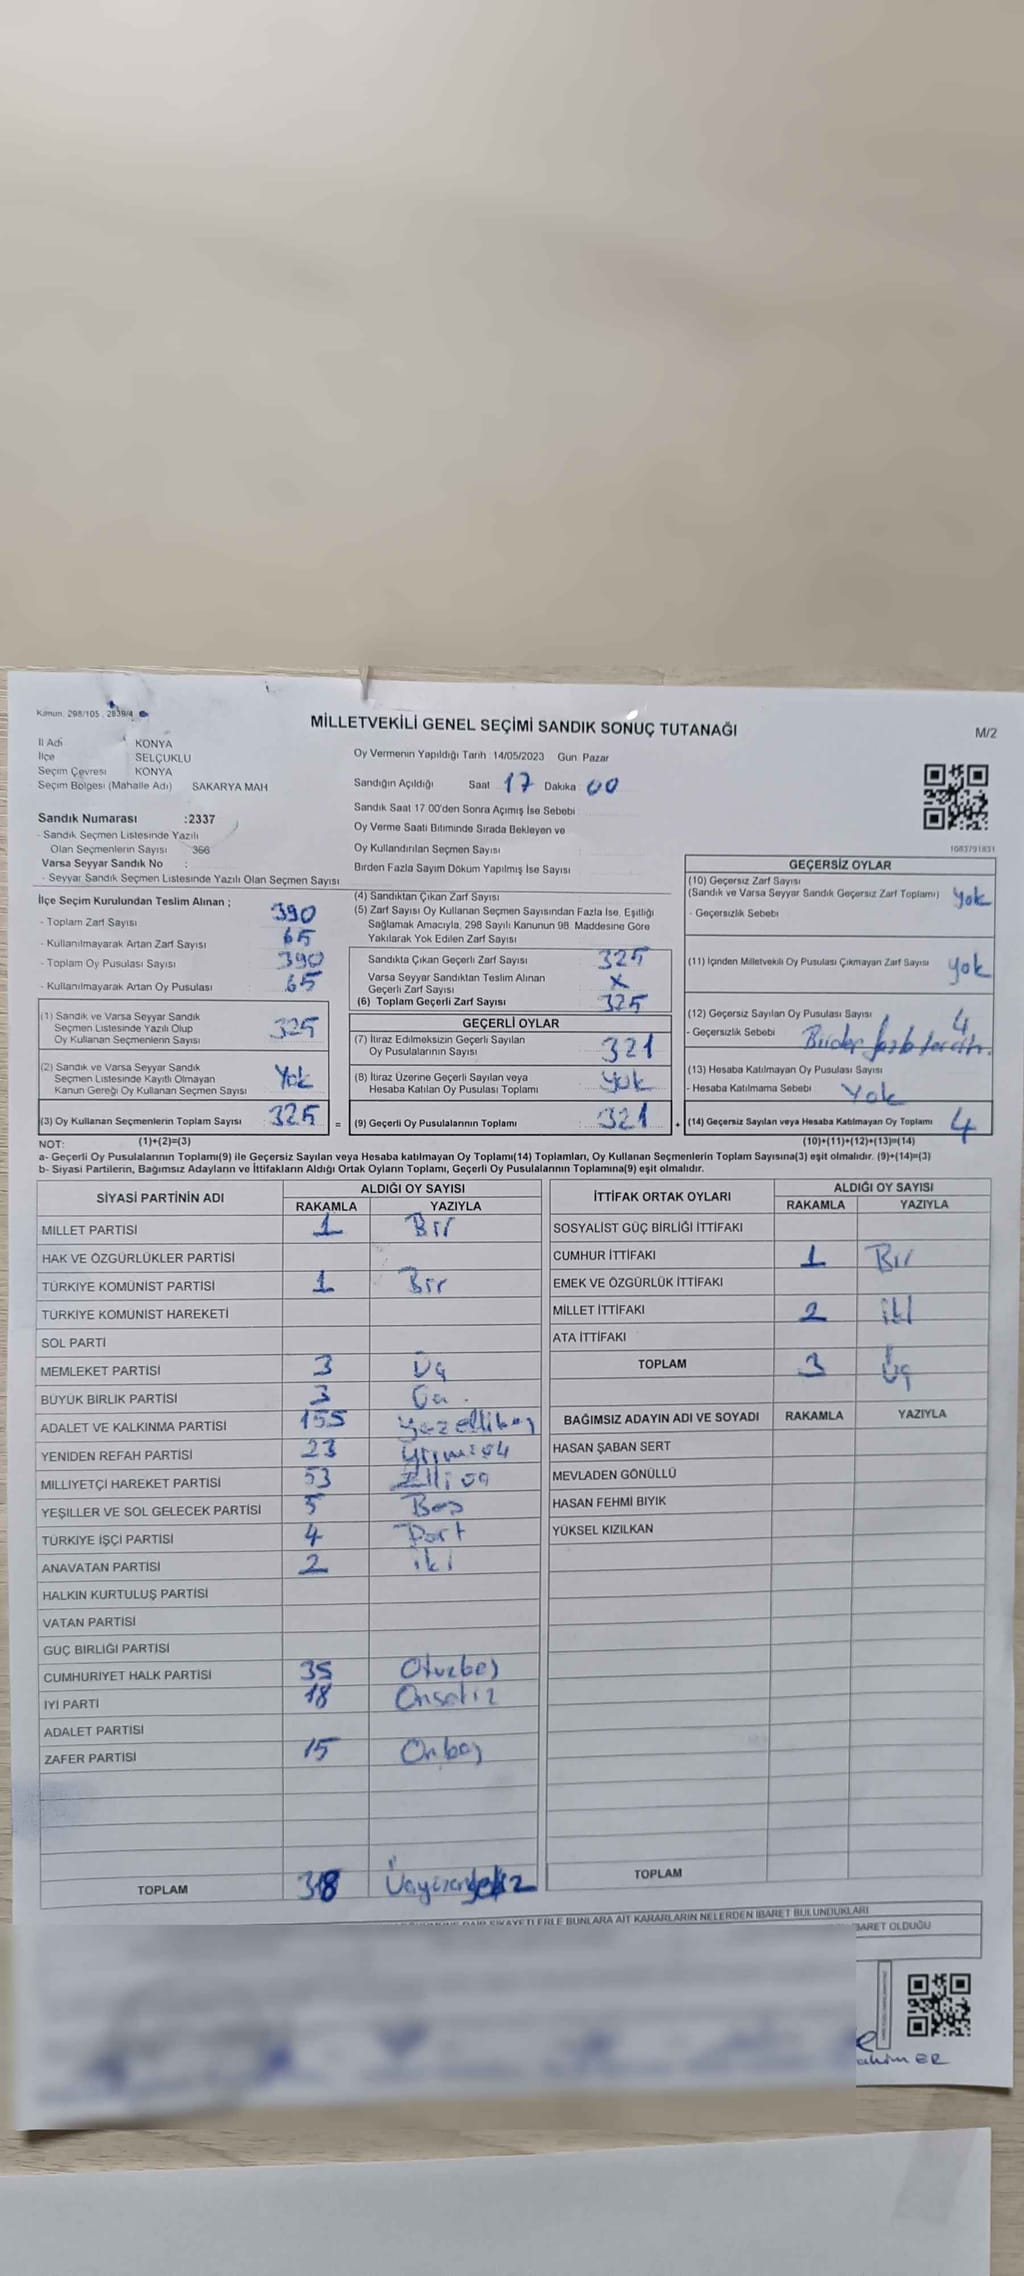 Kanun. 298/105 , 2839/4
MİLLETVEKİLİ GENEL SEÇİMİ SANDIK SONUÇ TUTANAĞI
M/2
İl Adı KONYA
İlçe SELÇUKLU
Seçim Çevresi KONYA
Seçim Bölgesi (Mahalle Adı) SAKARYA MAH
Oy Vermenin Yapıldığı Tarih 14/05/2023 Gün Pazar
Sandığın Açıldığı Saat 17 Dakika 00
Sandık Saat 17.00'den Sonra Açımış İse Sebebi
Oy Verme Saati Bitiminde Sırada Bekleyen ve
Oy Kullandırılan Seçmen Sayısı
Birden Fazla Sayım Döküm Yapılmış İse Sayısı
1083791831
Sandık Numarası :2337
- Sandık Seçmen Listesinde Yazılı
Olan Seçmenlerin Sayısı 366
Varsa Seyyar Sandık No :
- Seyyar Sandık Seçmen Listesinde Yazılı Olan Seçmen Sayısı
İlçe Seçim Kurulundan Teslim Alınan ;
- Toplam Zarf Sayısı 390
- Kullanılmayarak Artan Zarf Sayısı 65
- Toplam Oy Pusulası Sayısı 390
- Kullanılmayarak Artan Oy Pusulası 65
(1) Sandık ve Varsa Seyyar Sandık
Seçmen Listesinde Yazılı Olup
Oy Kullanan Seçmenlerin Sayısı 325
(2) Sandık ve Varsa Seyyar Sandık
Seçmen Listesinde Kayıtlı Olmayan
Kanun Gereği Oy Kullanan Seçmen Sayısı Yok
(3) Oy Kullanan Seçmenlerin Toplam Sayısı 325
(1)+(2)=(3)
(4) Sandıktan Çıkan Zarf Sayısı
(5) Zarf Sayısı Oy Kullanan Seçmen Sayısından Fazla İse, Eşitliği
Sağlamak Amacıyla, 298 Sayılı Kanunun 98. Maddesine Göre
Yakılarak Yok Edilen Zarf Sayısı
Sandıkta Çıkan Geçerli Zarf Sayısı 325
Varsa Seyyar Sandıktan Teslim Alınan
Geçerli Zarf Sayısı X
(6) Toplam Geçerli Zarf Sayısı 325
GEÇERLİ OYLAR
(7) İtiraz Edilmeksizin Geçerli Sayılan
Oy Pusulalarının Sayısı 321
(8) İtiraz Üzerine Geçerli Sayılan veya
Hesaba Katılan Oy Pusulası Toplamı yok
= (9) Geçerli Oy Pusulalarının Toplamı 321 +
GEÇERSİZ OYLAR
(10) Geçersiz Zarf Sayısı
(Sandık ve Varsa Seyyar Sandık Geçersiz Zarf Toplamı) yok
- Geçersizlik Sebebi
(11) İçinden Milletvekili Oy Pusulası Çıkmayan Zarf Sayısı yok
(12) Geçersiz Sayılan Oy Pusulası Sayısı 4
- Geçersizlik Sebebi Birden fazla tercih.
(13) Hesaba Katılmayan Oy Pusulası Sayısı
- Hesaba Katılmama Sebebi Yok
(14) Geçersiz Sayılan veya Hesaba Katılmayan Oy Toplamı 4
(10)+(11)+(12)+(13)=(14)
NOT:
a- Geçerli Oy Pusulalarının Toplamı(9) ile Geçersiz Sayılan veya Hesaba katılmayan Oy Toplamı(14) Toplamları, Oy Kullanan Seçmenlerin Toplam Sayısına(3) eşit olmalıdır. (9)+(14)=(3)
b- Siyasi Partilerin, Bağımsız Adayların ve İttifakların Aldığı Ortak Oyların Toplamı, Geçerli Oy Pusulalarının Toplamına(9) eşit olmalıdır.
SİYASİ PARTİNİN ADI ALDIĞI OY SAYISI
RAKAMLA YAZIYLA
MİLLET PARTİSİ 1 Bir
HAK VE ÖZGÜRLÜKLER PARTİSİ
TÜRKİYE KOMÜNİST PARTİSİ 1 Bir
TÜRKİYE KOMÜNİST HAREKETİ
SOL PARTİ
MEMLEKET PARTİSİ 3 Üç
BÜYÜK BİRLİK PARTİSİ 3 Üç
ADALET VE KALKINMA PARTİSİ 155 Yüzellibeş
YENİDEN REFAH PARTİSİ 23 Yirmiüç
MİLLİYETÇİ HAREKET PARTİSİ 53 Elliüç
YEŞİLLER VE SOL GELECEK PARTİSİ 5 Beş
TÜRKİYE İŞÇİ PARTİSİ 4 Dört
ANAVATAN PARTİSİ 2 iki
HALKIN KURTULUŞ PARTİSİ
VATAN PARTİSİ
GÜÇ BİRLİĞİ PARTİSİ
CUMHURİYET HALK PARTİSİ 35 Otuzbeş
İYİ PARTİ 18 Onsekiz
ADALET PARTİSİ
ZAFER PARTİSİ 15 Onbeş
TOPLAM 318 Üçyüzonsekiz
İTTİFAK ORTAK OYLARI ALDIĞI OY SAYISI
RAKAMLA YAZIYLA
SOSYALİST GÜÇ BİRLİĞİ İTTİFAKI
CUMHUR İTTİFAKI 1 Bir
EMEK VE ÖZGÜRLÜK İTTİFAKI
MİLLET İTTİFAKI 2 iki
ATA İTTİFAKI
TOPLAM 3 Üç
BAĞIMSIZ ADAYIN ADI VE SOYADI RAKAMLA YAZIYLA
HASAN ŞABAN SERT
MEVLADEN GÖNÜLLÜ
HASAN FEHMİ BIYIK
YÜKSEL KIZILKAN
TOPLAM
BUNLARA AİT KARARLARIN NELERDEN İBARET BULUNDUKLARI
OLDUĞU
ER